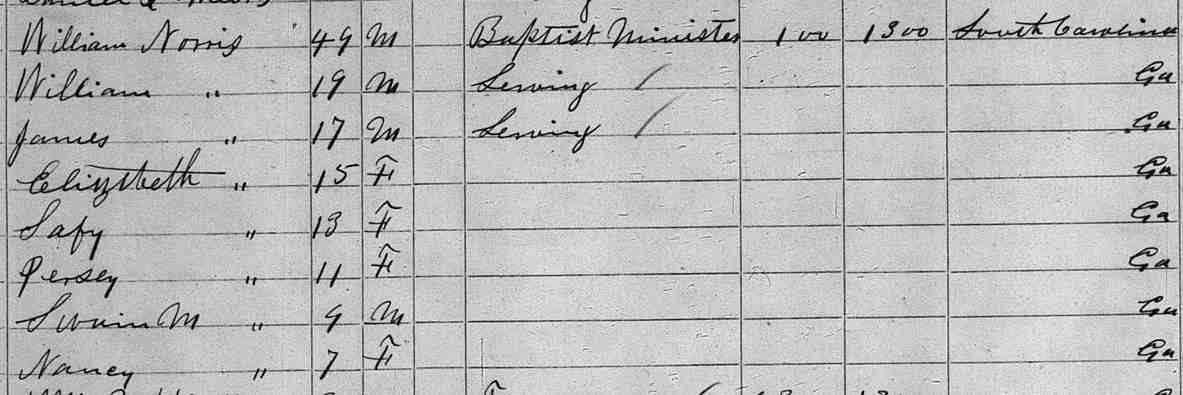 William Norris 49 M Baptist Minister 100 1300 South Carolina
William " 19 M Serving Ga
James " 17 M Serving Ga
Elizabeth " 15 F Ga
Safy " 13 F Ga
Persey " 11 F Ga
Swain M " 9 M Ga
Nancy " 7 F Ga